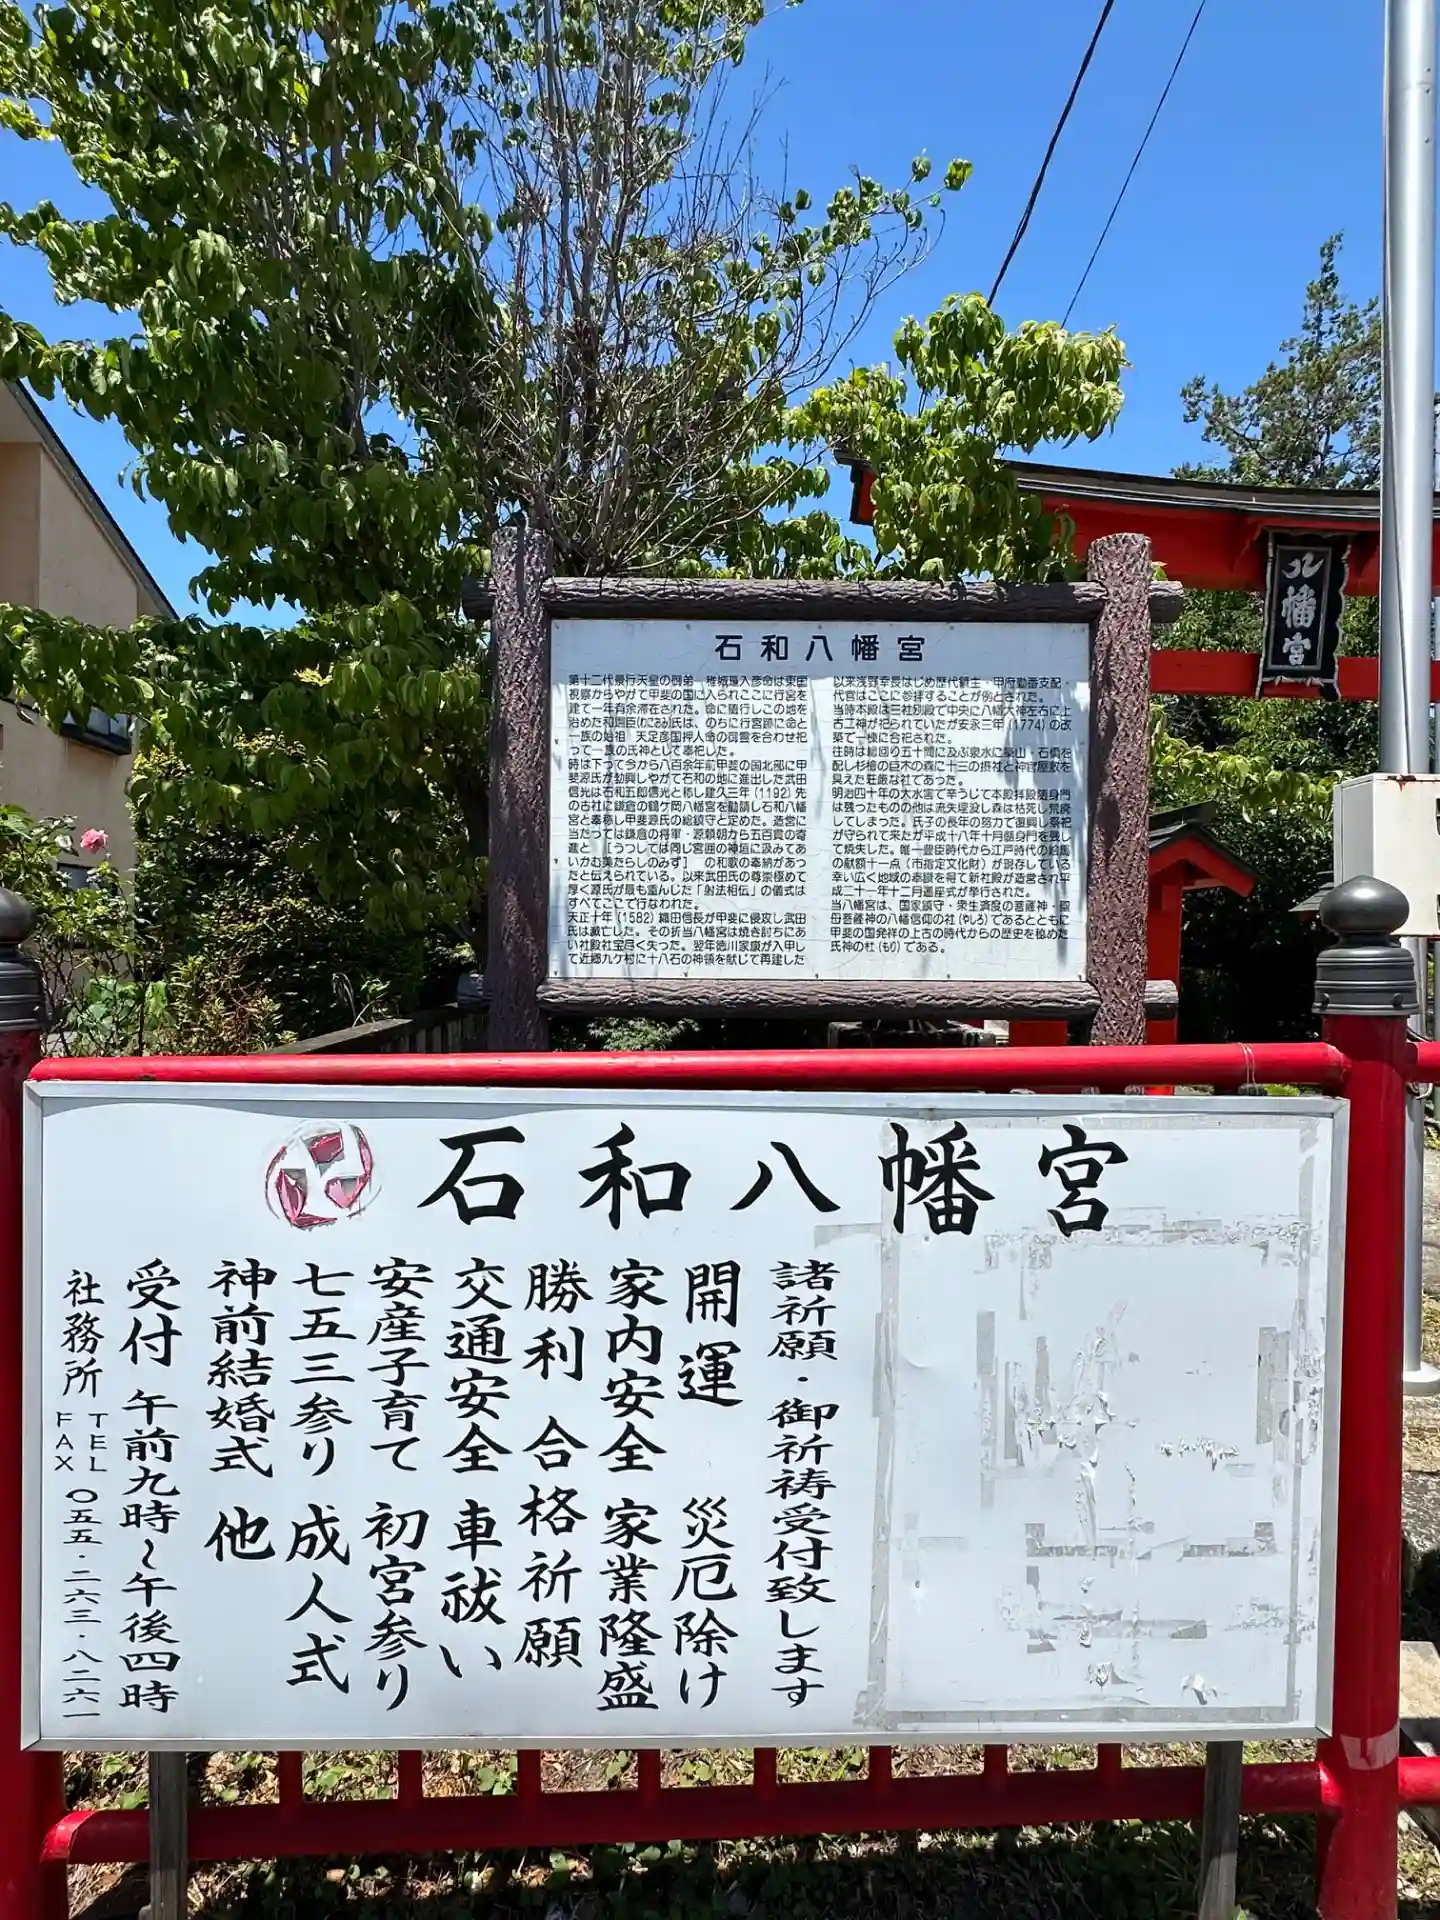 八幡宮
石和八幡宮
第十二代景行天皇の御弟 稚城瓊入彦命は東国
視察からやがて甲斐の国に入られここに行宮を
建て一年有余滞在された。命に随行しこの地を
治めた和珥臣(わにおみ)氏は、のちに行宮跡に命と
一族の始祖 天足彦国押人命の御霊を合わせ祀
って一族の氏神として奉祀した。
時は下って今から八百余年前甲斐の国北部に甲
斐源氏が勃興しやがて石和の地に進出した武田
信光は石和五郎信光と称し建久三年(1192)先
の古社に鎌倉の鶴ケ岡八幡宮を勧請し石和八幡
宮と奉称し甲斐源氏の総鎮守と定めた。造営に
当たっては鎌倉の将軍・源頼朝から五百貫の寄
進と [うつしては同じ宮囲の神垣に汲みてあ
いかむ美たらしのみず] の和歌の奉納があっ
たと伝えられている。以来武田氏の尊崇極めて
厚く源氏が最も重んじた「射法相伝」の儀式は
すべてここで行なわれた。
天正十年(1582)織田信長が甲斐に侵攻し武田
氏は滅亡した。その折当八幡宮は焼き討ちにあ
い社殿社宝尽く失った。翌年徳川家康が入甲し
て近郷九ケ村に十八石の神領を献じて再建した
以来浅野幸長はじめ歴代領主・甲府勤番支配・
代官はここに参拝することが例とされた。
当時本殿は三社別殿で中央に八幡大神左右に上
古二神が祀られていたが安永三年(1774)の改
築で一棟に合祀された。
往時は総回り五十間に及ぶ泉水に築山・石橋を
配し杉檜の巨木の森に十三の摂社と神官屋敷を
具えた荘厳な社であった。
明治四十年の大水害で辛うじて本殿拝殿随身門
は残ったものの他は流失埋没し森は枯死し荒廃
してしまった。氏子の長年の努力で復興し祭祀
が守られて来たが平成十八年十月随身門を残し
て焼失した。唯一豊臣時代から江戸時代の絵馬
の献額十一点(市指定文化財)が現存している
幸い広く地域の奉讃を得て新社殿が造営され平
成二十一年十二月遷座式が挙行された。
当八幡宮は、国家鎮守・衆生済度の菩薩神・聖
母菩薩神の八幡信仰の社(やしろ)であるとともに
甲斐の国発祥の上古の時代からの歴史を秘めた
氏神の杜(もり)である。
石和八幡宮
諸祈願・御祈祷受付致します
開運 災厄除け
家内安全 家業隆盛
勝利 合格祈願
交通安全 車祓い
安産子育て 初宮参り
七五三参り 成人式
神前結婚式 他
受付 午前九時～午後四時
社務所 TEL FAX 〇五五・二六三・八二六一